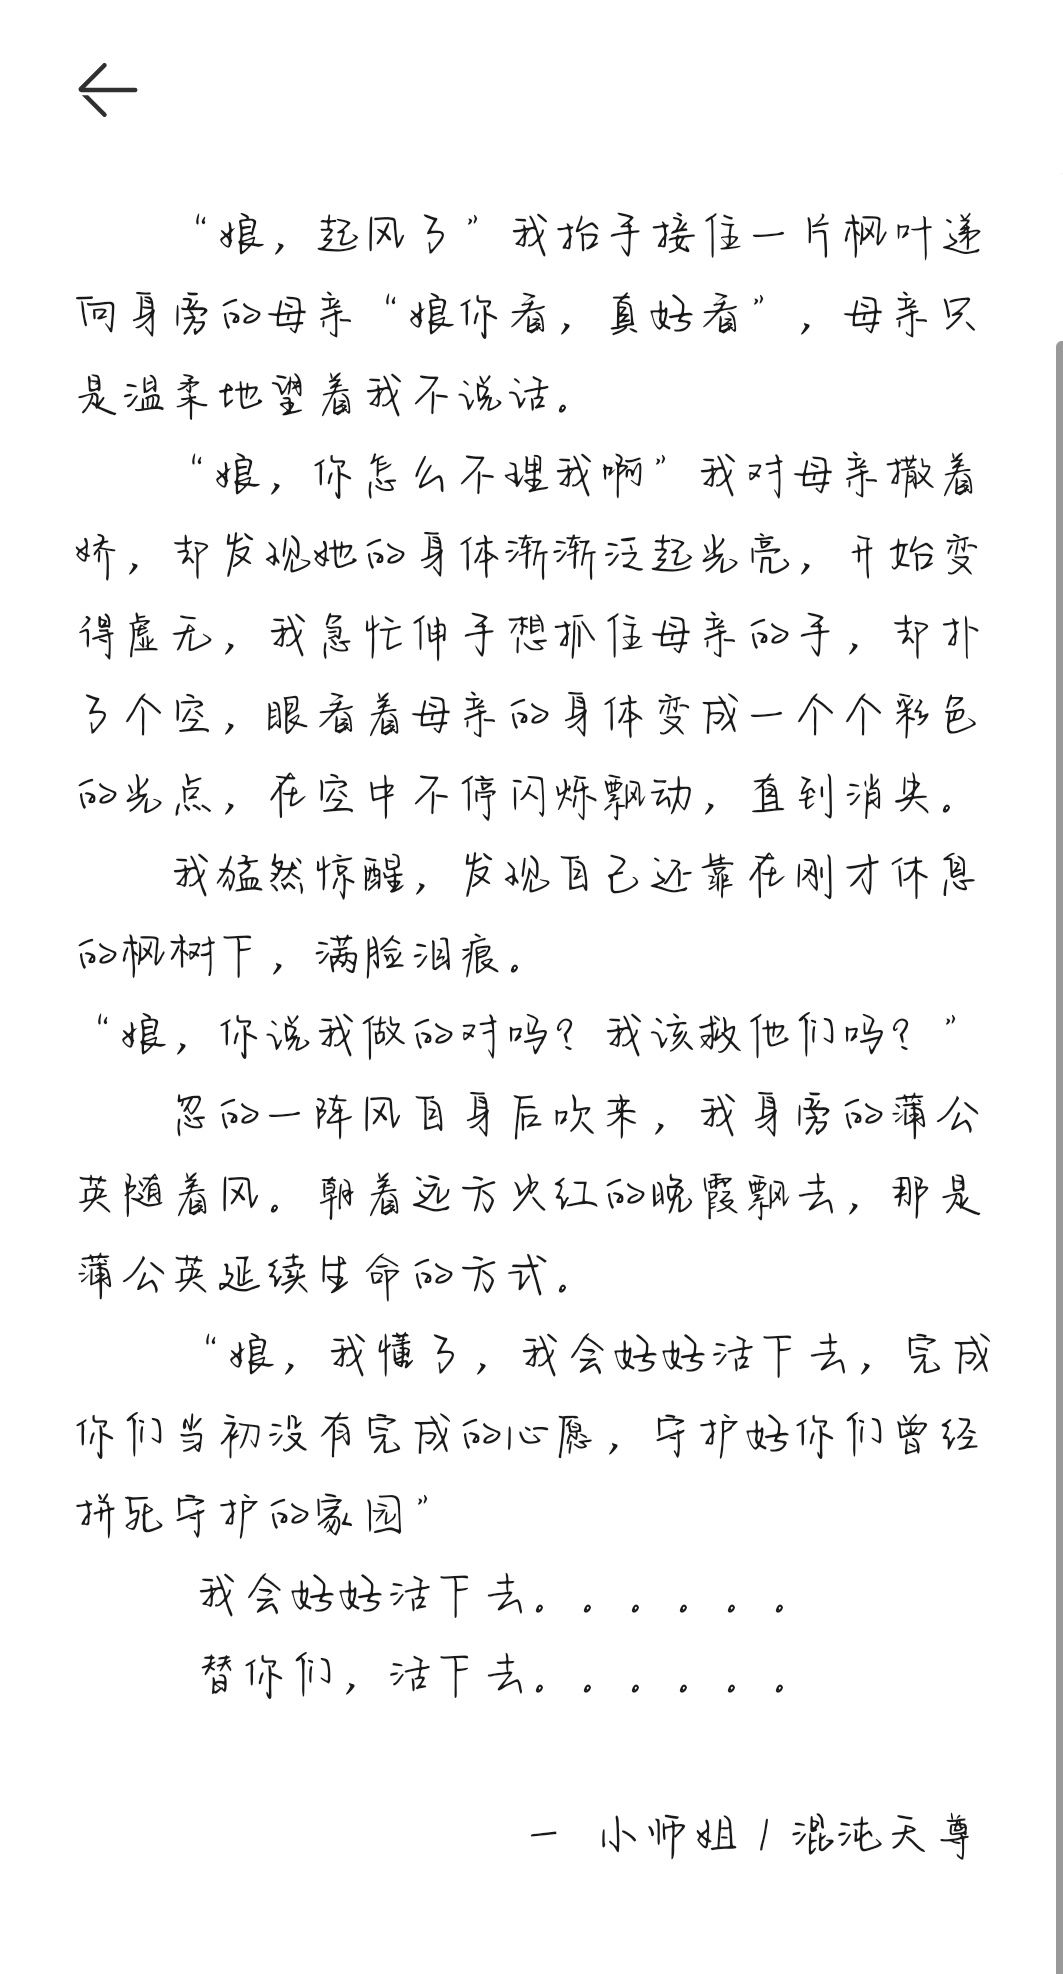 “娘，起风了”我抬手接住一片枫叶递
向身旁的母亲“娘你看，真好看”，母亲只
是温柔地望着我不说话。
“娘，你怎么不理我啊”我对母亲撒着
娇，却发现她的身体渐渐泛起光亮，开始变
得虚无，我急忙伸手想抓住母亲的手，却扑
了个空，眼看着母亲的身体变成一个个彩色
的光点，在空中不停闪烁飘动，直到消失。
我猛然惊醒，发现自己还靠在刚才休息
的枫树下，满脸泪痕。
“娘，你说我做的对吗？我该救他们吗？”
忽的一阵风自身后吹来，我身旁的蒲公
英随着风。朝着远方火红的晚霞飘去，那是
蒲公英延续生命的方式。
“娘，我懂了，我会好好活下去，完成
你们当初没有完成的心愿，守护好你们曾经
拼死守护的家园”
我会好好活下去。。。。。。
替你们，活下去。。。。。。
— 小师姐/混沌天尊